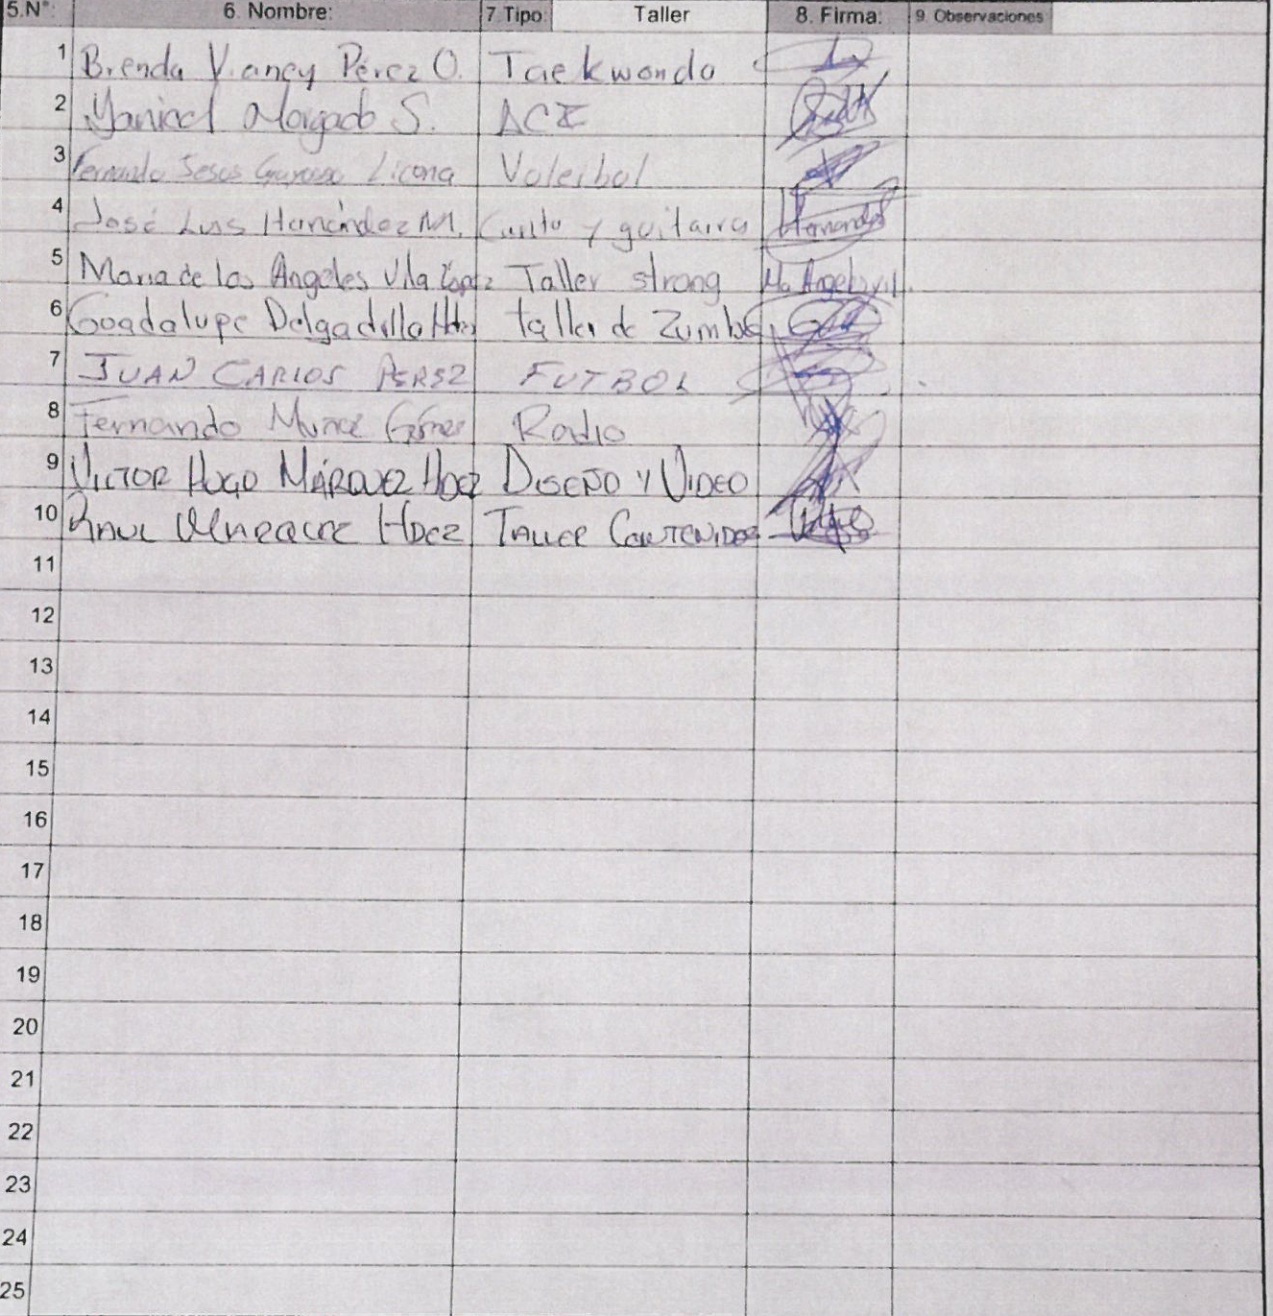 5.N°: 6. Nombre: 7.Tipo: Taller 8. Firma: 9. Observaciones
1 Brenda Viancy Pérez O. Taekwondo
2 Morgado S.
3 Fernando Jesus Licona Voleibol
4 José Luis Hernández M. Canto y guitarra Hernandez
5 Maria de los Angeles Vila López Taller strong Ma Angeles
6 Guadalupe Delgadillo Hdez taller de Zumba
7 JUAN CARLOS PEREZ FUTBOL
8 Fernando Radio
9 VICTOR HUGO MÁRQUEZ HDEZ DISEÑO Y VIDEO
10 RAUL HDEZ TALLER CONTENIDOS
11
12
13
14
15
16
17
18
19
20
21
22
23
24
25